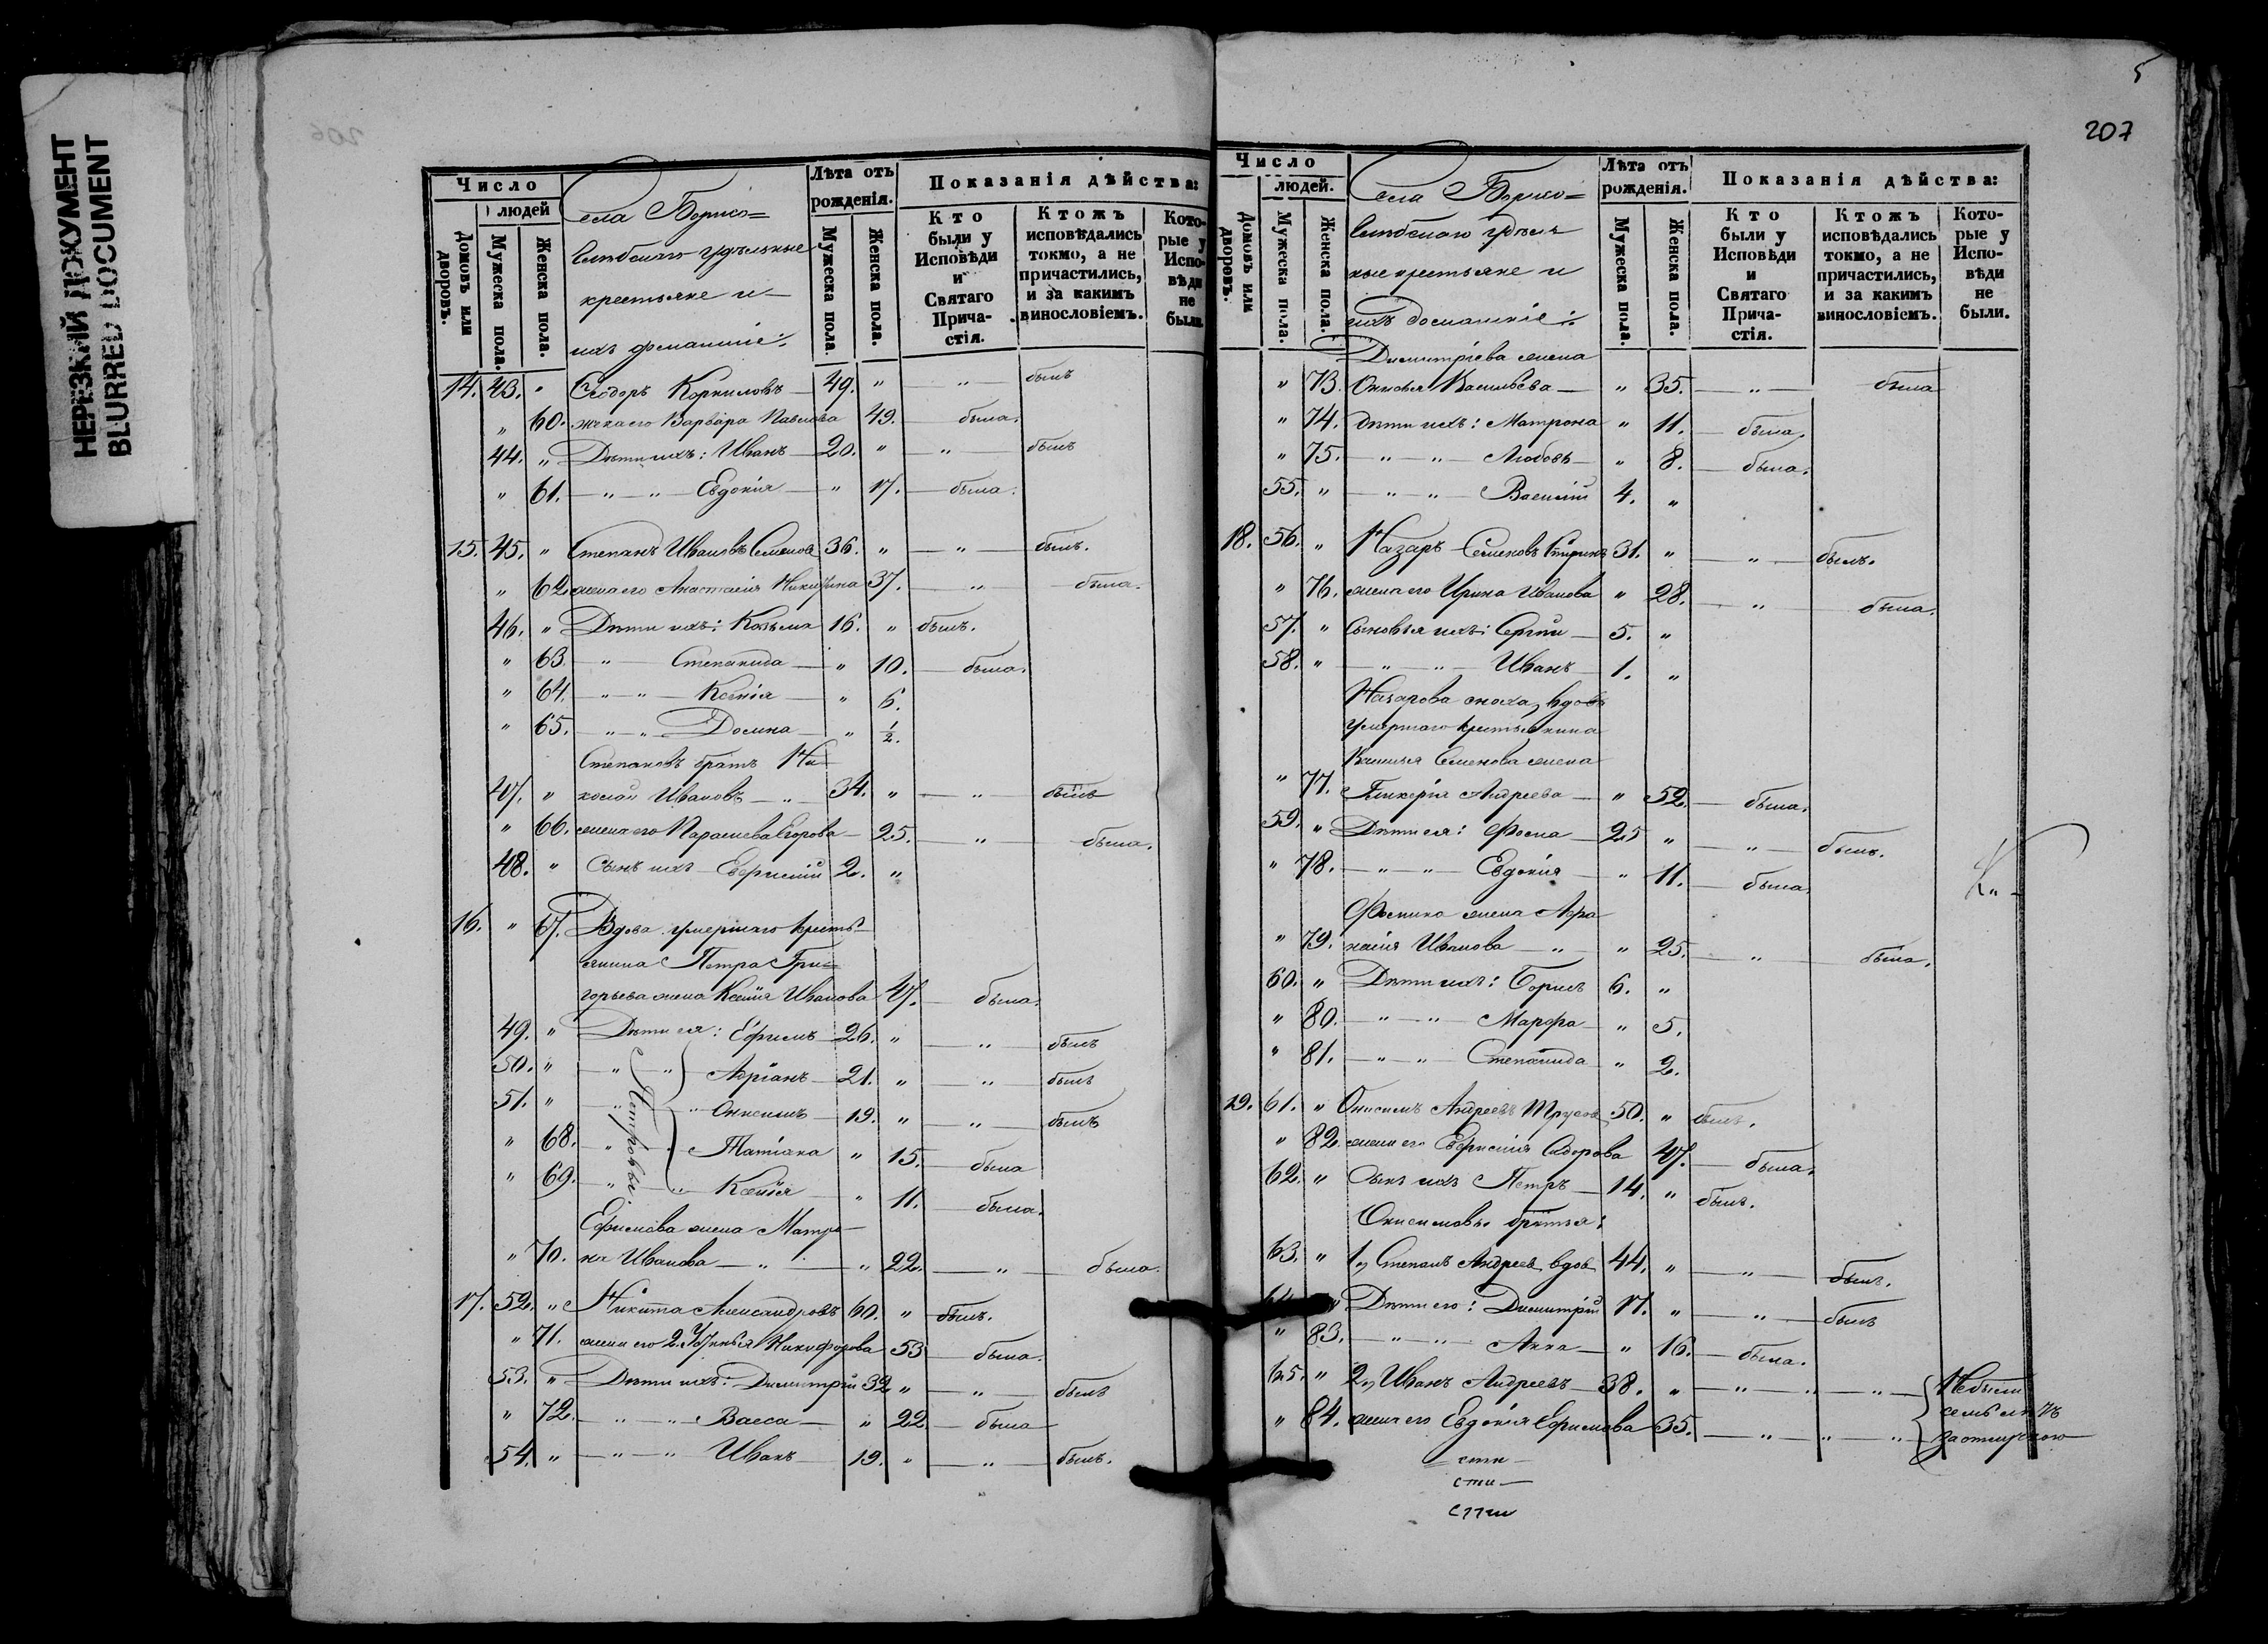 НЕРЕЗКИЙ ДОКУМЕНТ
BLURRED DOCUMENT
206
Число
людей
Домовъ или дворовъ.
Мужеска пола.
Женска пола.
Села Борисо=
глѣбскаго удѣльные
крестьяне и
ихъ домашніе:
Лѣта отъ рожденія.
Мужеска пола.
Женска пола.
Показанія дѣйства:
Кто были у Исповѣди и Святаго Прича-стія.
Ктожъ исповѣдались токмо, а не причастились, и за какимъ винословіемъ.
Кото-рые у Испо-вѣди не были.
14. 43. " Сѵдоръ Корниловъ 49. " " былъ
" 60. жена его Варвара Павлова 49. была.
44. " Дѣти ихъ: Иванъ 20. " " былъ
" 61. " " Евдокія " 17. была.
15. 45. " Степанъ Ивановъ Семенов 36. " " былъ.
" 62. жена его Анастасія Никитина 37. " была.
46. " Дѣти ихъ: Козьма 16. " былъ.
" 63. " Степанида " 10. была.
" 64. " " Ксенія " 6.
" 65. " " Домна " 1/2.
Степановъ братъ Ни-
47. " колай Ивановъ " 34. " " былъ
" 66. жена его Параскева Егорова 25. " была.
48. " Сынъ ихъ Евфимій 2. "
16. " 67. Вдова умершаго кресть-
янина Петра Гри=
горьева жена Ксенія Иванова 47. была.
49. " Дѣти ея: Ефимъ 26. " " былъ
50. " " " Адріанъ 21. " " былъ
51. " " " Онисимъ 19. " " былъ
Петровы.
" 68. " Татіана " 15. была
" 69. " " Ксенія " 11. была.
Ефимова жена Матро-
" 70. на Иванова " " 22. " была.
17. 52. " Никита Александровъ 60. " былъ.
" 71. жена его 2. Никифорова 53 была.
53. " Дѣти ихъ: Димитрій 32 " " былъ
" 72. " " Васса " 22 была
54. " " " Иванъ 19. " " былъ.
5
207
Число
людей.
Домовъ или дворовъ.
Мужеска пола.
Женска пола.
Села Борисо=
глѣбскаго удѣль
ные крестьяне и
ихъ домашніе:
Лѣта отъ рожденія.
Мужеска пола.
Женска пола.
Показанія дѣйства:
Кто были у Исповѣди и Святаго Прича-стія.
Ктожъ исповѣдались токмо, а не причастились, и за какимъ винословіемъ.
Кото-рые у Испо-вѣди не были.
Димитріева жена
" 73. Васильева " 35. " была
" 74. Дѣти ихъ: Матрона " 11. была.
" 75. " " Любовь " 8. была.
55. " " " Василій 4. "
18. 56. " Назаръ Семеновъ 31. " " былъ.
" 76. жена его Ирина Иванова " 28. " была.
57. " Сыновья ихъ: Сергій 5. "
58. " " " Иванъ 1. "
Назарова сноха, вдова
умершаго крестьянина
Семенова жена
" 77. Гликерія Андреева " 52. была.
59. " Дѣти ея: Фома 25 " " былъ.
" 78. " " Евдокія " 11. была.
Фомина жена Афа
" 79. насія Иванова " " 25. " была.
60. " Дѣти ихъ: Борисъ 6. "
" 80. " " Марфа " 5.
" 81. " " Степанида " 2.
19. 61. " Онисимъ Андреевъ Трусов 50. " былъ.
" 82. жена его Евфимія Сидорова 47. была.
62. " Сынъ ихъ Петръ 14. " былъ.
Онисимовы братья:
63. " 1, Степанъ Андреев вдов 44. " " былъ.
64. " Дѣти его: Димитрій 17. " " былъ
" 83. " " Анна " 16. была.
65. " 2, Иванъ Андреевъ 38. " " " Небыли
" 84. жена его Евдокія Ефимова 35. " " " семь лѣтъ
за отлучкою